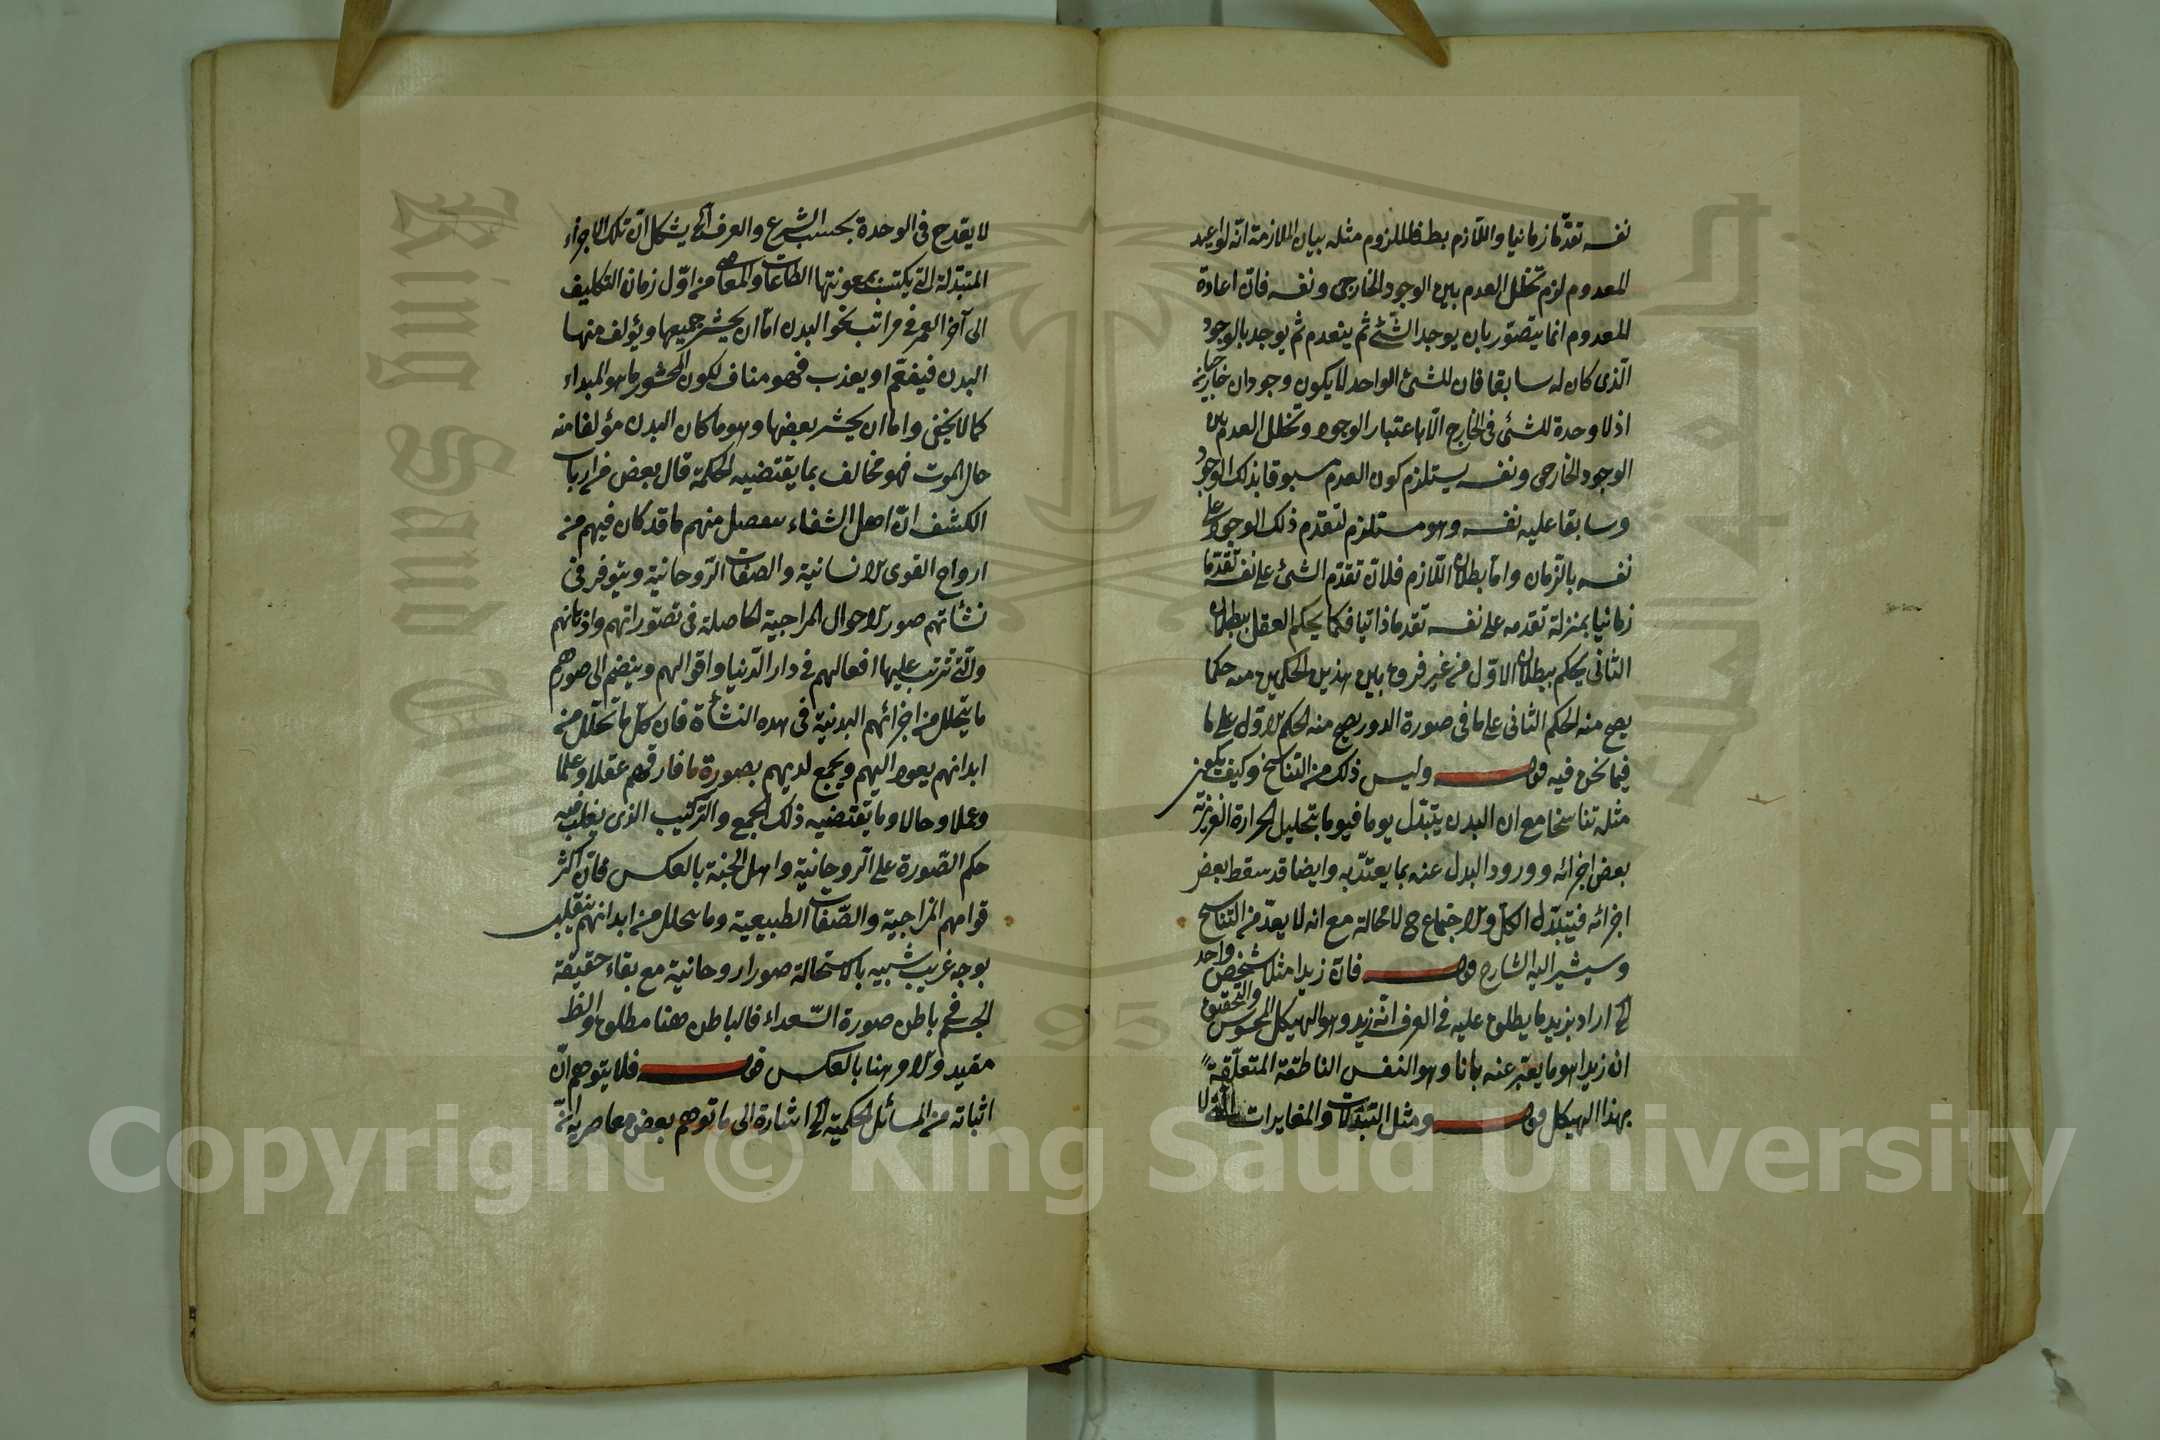 نفسه تقدما زمانيا واللازم بط فالملزوم مثله بيان الملازمة انه لو اعيد
المعدوم لزم تخلل العدم بين الوجود الخارجى ونفسه فان اعادة
المعدوم انما يتصور بان يوجد الشئ ثم ينعدم ثم يوجد بالوجود
الذى كان له سابقا فان للشئ الواحد لا يكون وجودان خارجيان
اذ لا وحدة للشئ فى الخارج الا باعتبار الوجود وتخلل العدم بين
الوجود الخارجى ونفسه يستلزم كون العدم مسبوقا بذلك الوجود
وسابقا عليه نفسه وهو مستلزم لتقدم ذلك الوجود على
نفسه بالزمان واما بطلان اللازم فلان تقدم الشئ على نفسه تقدما
زمانيا بمنزلة تقدمه على نفسه تقدما ذاتيا فكما يحكم العقل ببطلان
الثانى يحكم ببطلان الاول من غير فرق بين هذين الحكمين منه حكما
يصح منه الحكم الثانى على ما فى صورة الدور يصح منه الحكم الاول على ما
فيما نحن فيه قوله وليس ذلك من التناسخ وكيف يكون
مثله تناسخا مع ان البدن يتبدل يوما فيوما بتحليل الحرارة الغريزية
بعض اجزائه وورود البدل عنه بما يعتد به وايضا قد سقط بعض
اجزائه فيتبدل الكل والاجتماع ح لا محالة مع انه لا يعد من التناسخ
وسيشير اليه الشارح قوله فان زيدا مثلا شخص واحد
الخ اراد بزيد ما يطلق عليه فى العرف انه زيد وهو الهيكل المحسوس والتحقيق
ان زيدا هو ما يعبر عنه بانا وهو النفس الناطقة المتعلقة
بهذا الهيكل قوله ومثل التبدلات والمغايرات التى لا
لا يقدح فى الوحدة بحسب الشرع والعرف الخ يشكل ان تلك الاجزاء
المتبدلة التى يكتسب بمعونتها الطاعات والمعاصى من اول زمان التكليف
الى آخر العمر فى مراتب نحو البدن اما ان يحشر جميعها ويؤلف منها
البدن فينعم او يعذب فهو مناف لكون المحشور ما هو المبداء
كما لا يخفى واما ان يحشر بعضها وهو ما كان البدن مؤلفا منه
حال الموت فهو مخالف بما يقتضيه الحكمة قال بعض من ارباب
الكشف ان اهل الشقاء ينفصل منهم ما قد كان فيهم من
ارواح القوى الانسانية والصفات الروحانية ويتوفر فى
نشأتهم صور الاحوال المزاجية الحاصلة فى تصوراتهم واذهانهم
والتى ترتب عليها افعالهم فى دار الدنيا واقوالهم وينضم الى صورهم
ما يتحلل من اجزائهم البدنية فى هذه النشأة فان كل ما تحلل من
ابدانهم يعود اليهم ويجمع لديهم بصورة ما فارقهم عقلا وعلما
وعملا وحالا وما يقتضيه ذلك الجمع والتركيب الذى يغلب فيه
حكم الصورة على الروحانية واهل الجنة بالعكس فان اكثر
قواهم المزاجية والصفات الطبيعية وما يتحلل من ابدانهم ينقلب
بوجه غريب شبيه بالاستحالة صورا روحانية مع بقاء حقيقة
الجسم فى باطن صورة السعداء فالباطن هنا مطلق والظ
مقيد والامر هنا بالعكس قوله فلا يتوهم ان
اثباته من المسائل الحكمية الخ اشارة الى ما توهم بعض معاصريه انه
Copyright © King Saud University